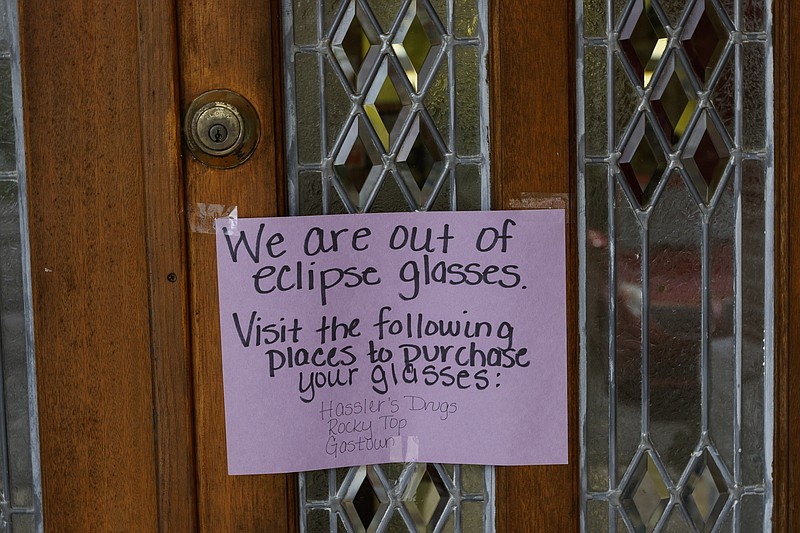 We are out of
eclipse glasses.
Visit the following
places to purchase
your glasses:
Hassler's Drugs
Rocky Top
Gastown